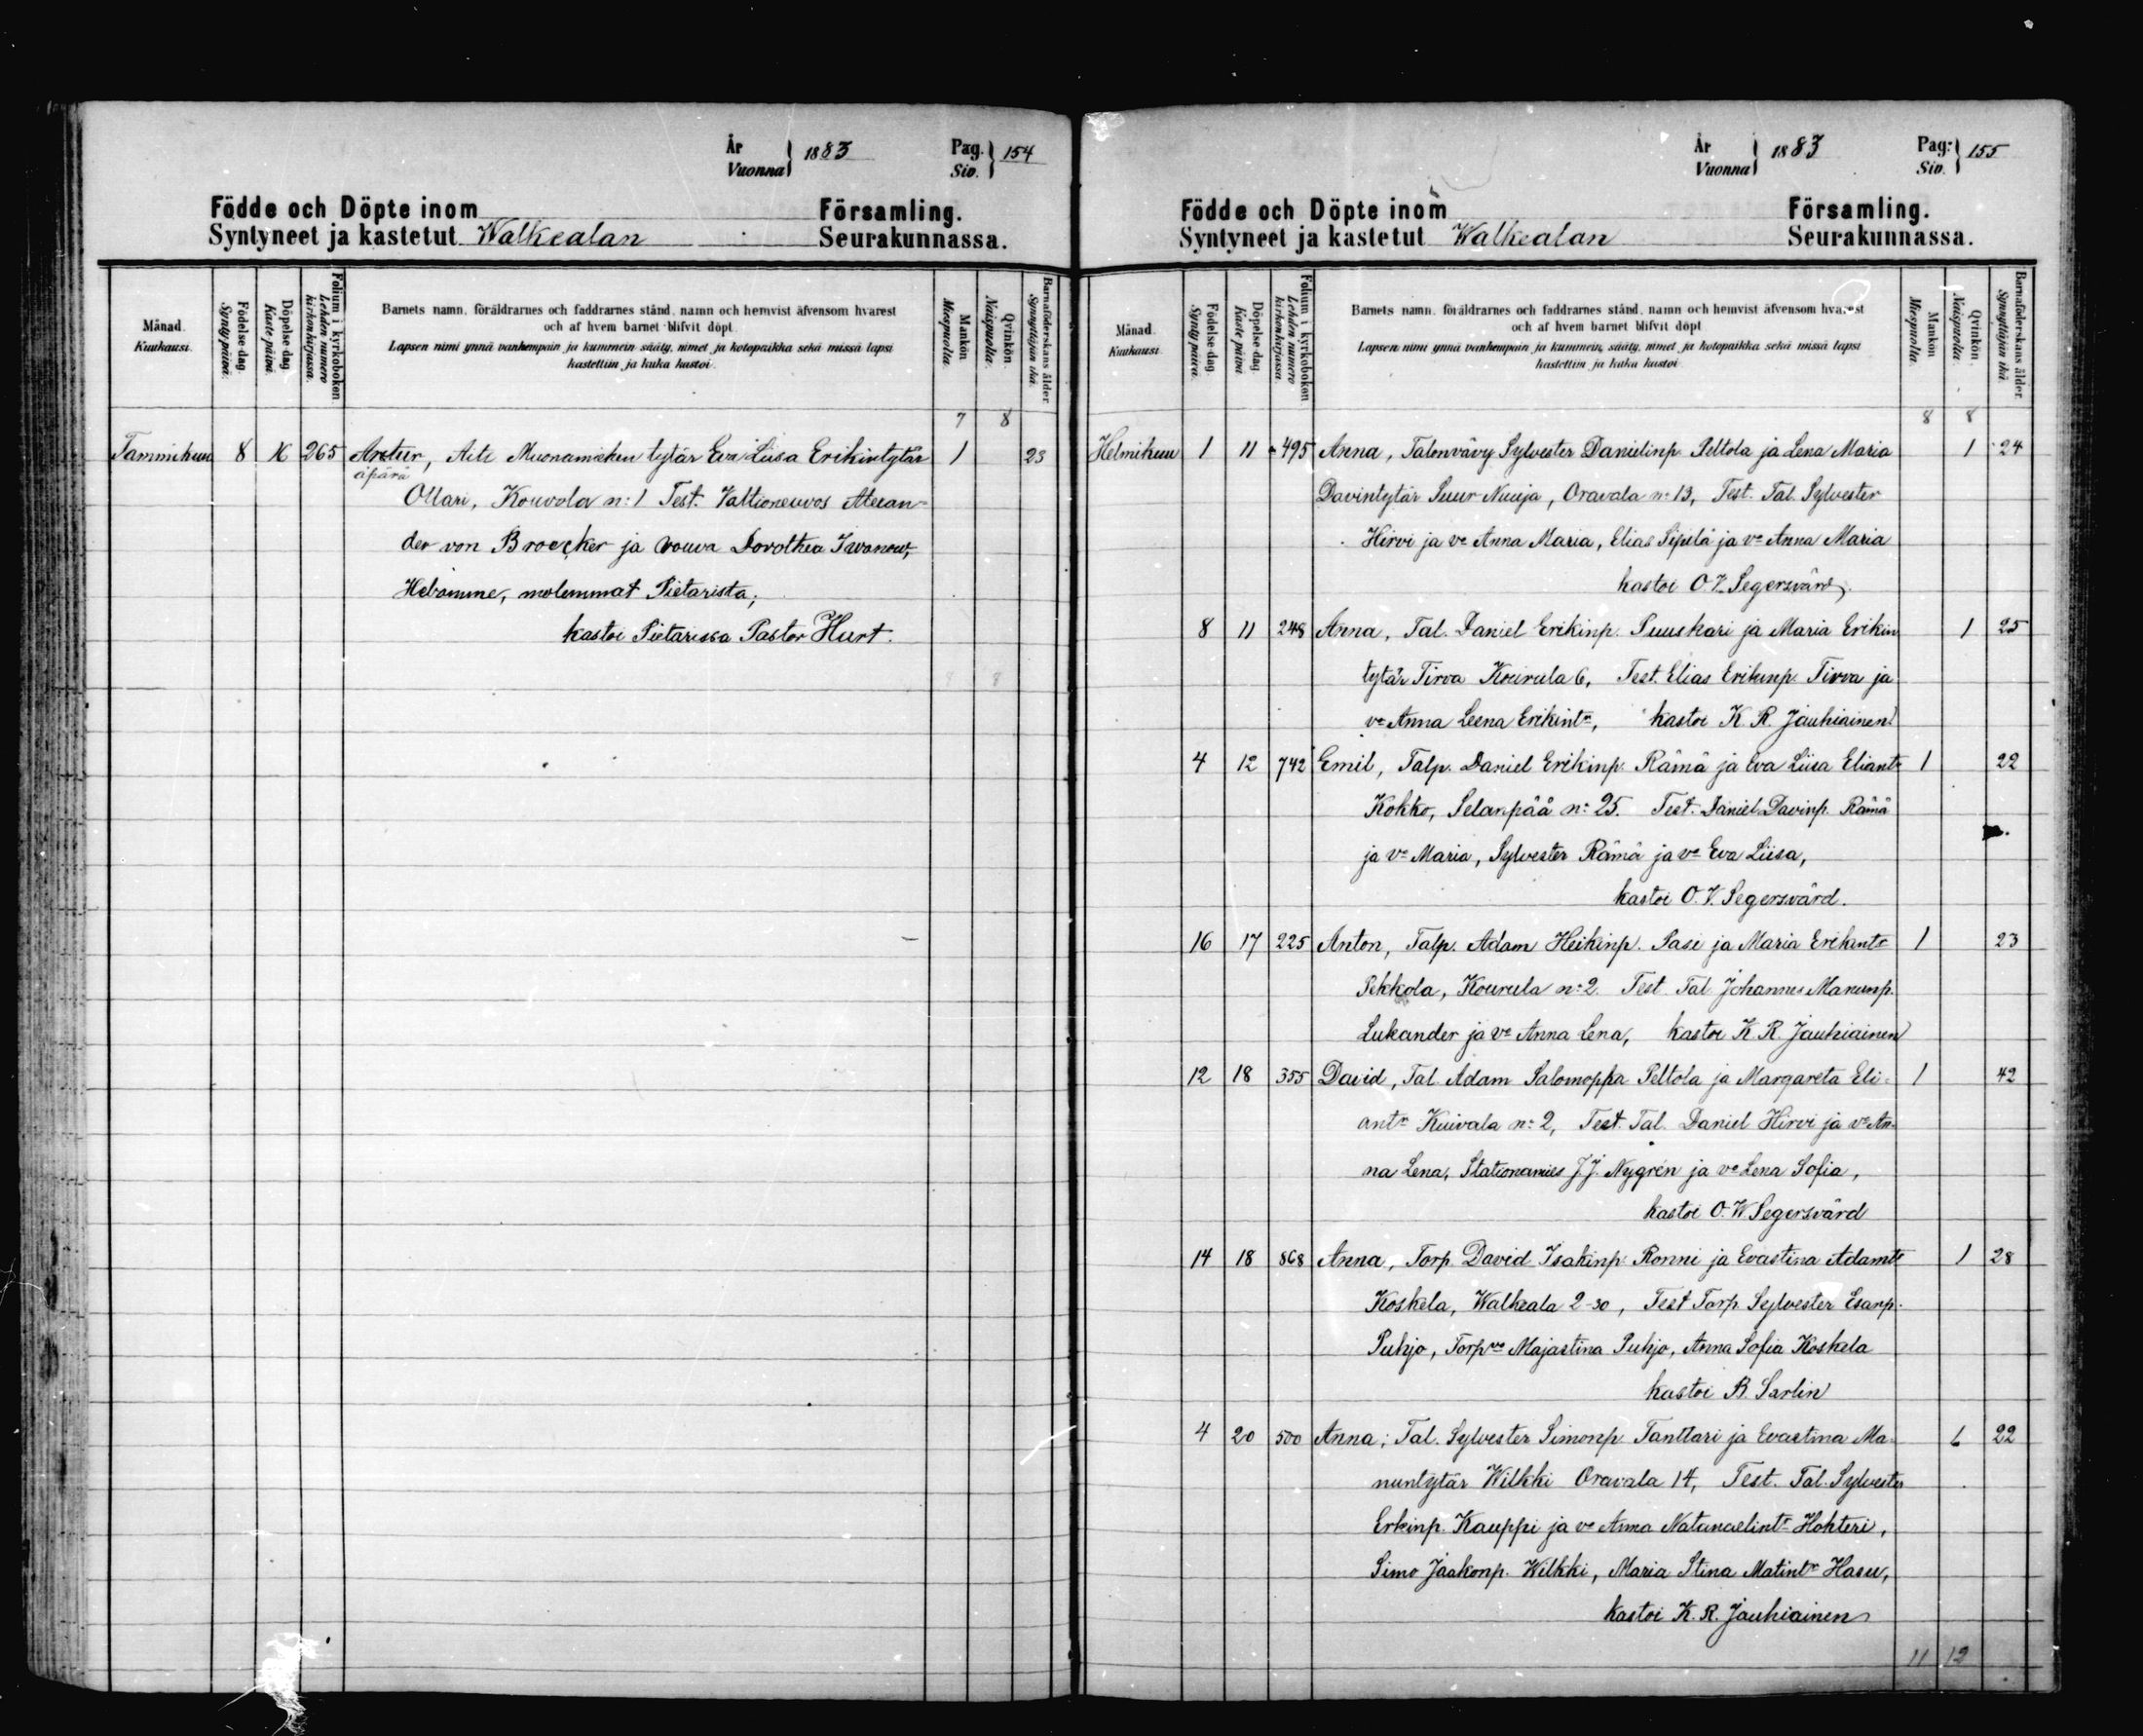 År Vuonna } 1883 Pag. Siv. } 154
Födde och Döpte inom Församling.
Syntyneet ja kastetut Walkealan Seurakunnassa.
Månad. Kuukausi.
Födelse dag. Synty päivä.
Döpelse dag. Kaste päivä.
Folium i kyrkoboken Lehden numero kirkonkirjassa.
Barnets namn, föräldrarnes och faddrarnes stånd, namn och hemvist äfvensom hvarest
och af hvem barnet blifvit döpt.
Lapsen nimi ynnä vanhempain ja kummein sääty, nimet ja kotopaikka sekä missä lapsi
kastettiin ja kuka kastoi.
Mankön. Miespuolta.
Qvinkön. Naispuolta.
Barnaföderskans ålder. Synnyttäjän ikä.
7 8
Tammikuu 8 16 265 Artur, Aiti Muonamiehen tytär Eva Liisa Erikintytär 1 23
äpärä
Ollari, Kouvola n:1 Test. Valtioneuvos Alexan-
der von Broecker ja rouva Dorothea Iwanow,
Hebamme, molemmat Pietarista;
kastoi Pietarissa Pastor Hurt.
8 8
År Vuonna } 1883 Pag: Siv. } 155
Födde och Döpte inom Församling.
Syntyneet ja kastetut Walkealan Seurakunnassa.
Månad. Kuukausi.
Födelse dag. Synty päivä.
Döpelse dag. Kaste päivä.
Folium i kyrkoboken Lehden numero kirkonkirjassa.
Barnets namn, föräldrarnes och faddrarnes stånd, namn och hemvist äfvensom hvarest
och af hvem barnet blifvit döpt.
Lapsen nimi ynnä vanhempain ja kummein sääty, nimet ja kotopaikka sekä missä lapsi
kastettiin ja kuka kastoi.
Mankön. Miespuolta.
Qvinkön. Naispuolta.
Barnaföderskans ålder. Synnyttäjän ikä.
8 8
Helmikuu 1 11 495 Anna, Talonvävy Sylvester Danielinp. Peltola ja Lena Maria 1 24
Davintytär Suur-Nuuja, Oravala n:13, Test. Tal. Sylvester
Hirvi ja vo Anna Maria, Elias Sipilä ja vo Anna Maria
kastoi O. V. Segersvärd.
8 11 248 Anna, Tal. Daniel Erikinp. Suuskari ja Maria Erikin 1 25
tytär Tirva Kourula 6, Test. Elias Erikinp. Tirva ja
vo Anna Leena Erikintr, kastoi K. R. Jauhiainen
4 12 742 Emil, Talp. Daniel Erikinp. Rämä ja Eva Liisa Eliantr 1 22
Kokko, Selanpää n: 25. Test. Daniel Davinp. Rämä
ja vo Maria, Sylvester Rämä ja vo Eva Liisa,
kastoi O. V. Segersvärd.
16 17 225 Anton, Talp. Adam Heikinp. Pasi ja Maria Erikintr 1 23
Pekkola, Kourula n:2. Test. Tal. Johannes Manunp.
Lukander ja vo Anna Lena, kastoi K. R. Jauhiainen
12 18 355 David, Tal. Adam Salomoppa Peltola ja Margareta Eli- 1 42
antr Kuivala n: 2, Test. Tal. Daniel Hirvi ja vo An-
na Lena, Stationamies J. J. Nygrén ja vo Lena Sofia,
kastoi O. W. Segersvärd
14 18 868 Anna, Torp. David Isakinp. Ronni ja Evastina Adamtr 1 28
Koskela, Walkeala 2-30, Test Torp. Sylvester Esanp.
Puhjo, Torpvo Majastina Puhjo, Anna Sofia Koskela
kastoi B. Sarlin
4 20 500 Anna; Tal. Sylvester Simonp. Tanttari ja Evastina Ma- 1 22
nuntytär Wilkki Oravala 14, Test. Tal. Sylvester
Erkinp. Kauppi ja vo Anna Natanaelintr Hohteri,
Simo Jaakonp. Wilkki, Maria Stina Matintr Hasu,
kastoi K. R. Jauhiainen
11 12